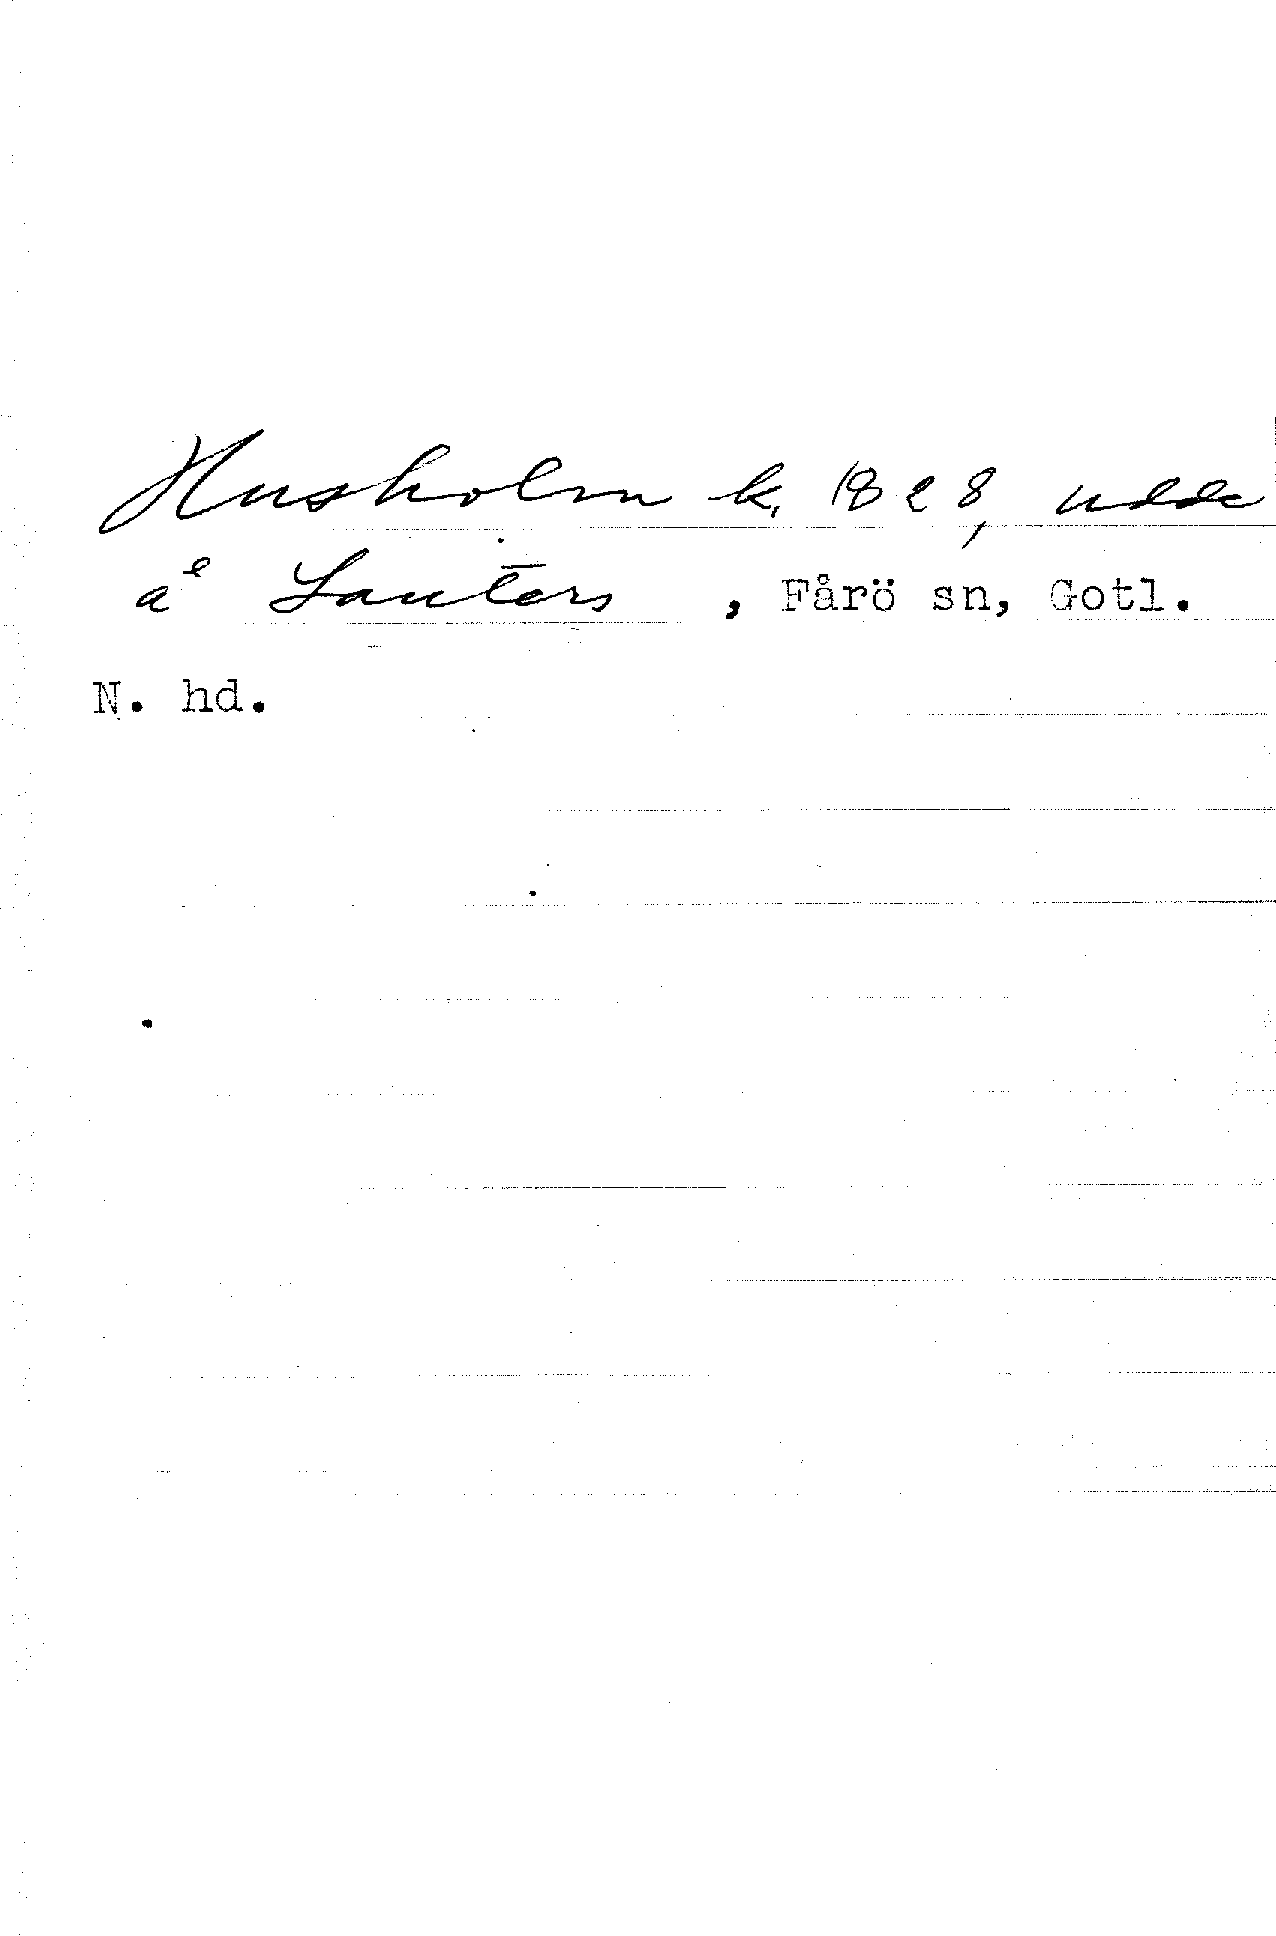 Husholm k. 1828, udde
å Lauters, Fårö sn, Gotl.
N. hd.